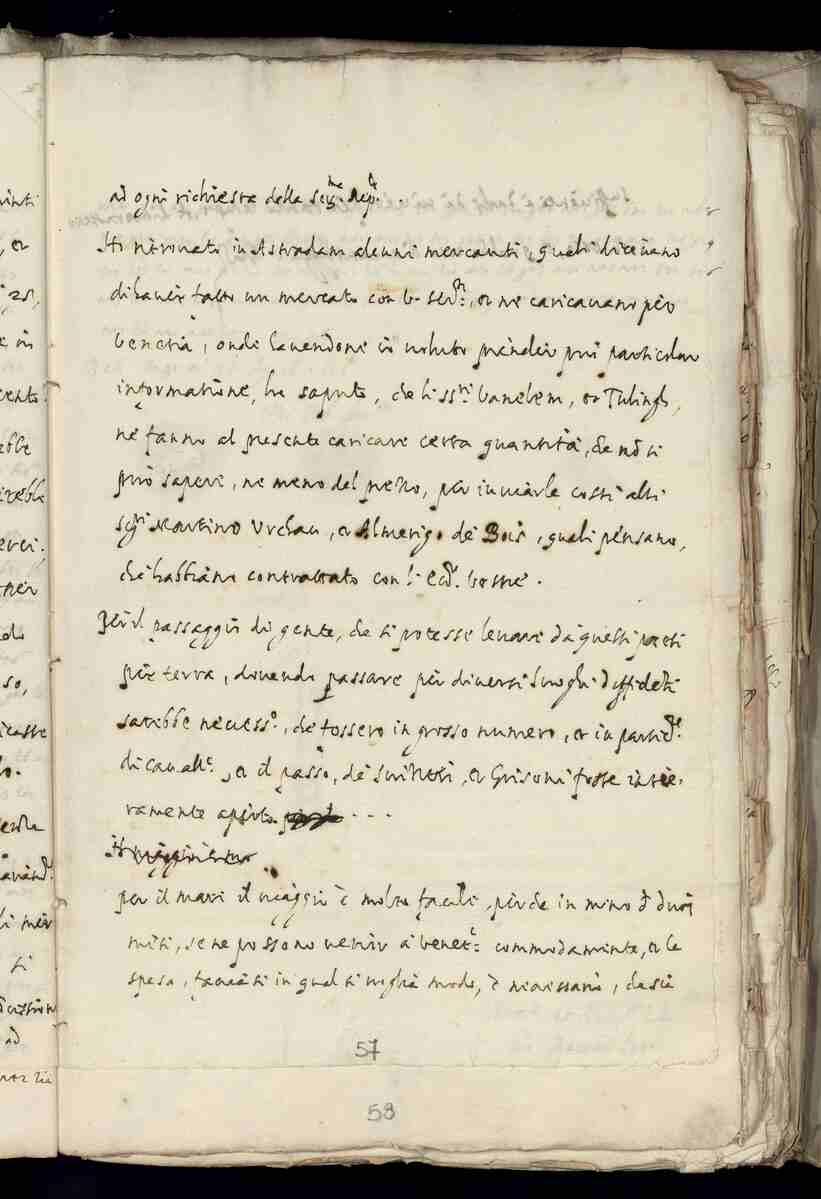 ad ogni richiesta della Ser.ma Rep.ca
Ho ritrovato in Astradam alcuni mercanti, quali diceuano
di hauer fatto un mercato con V. Ser.tà, et ne caricauano per
Venetia, onde hauendone io voluto prender più particolar
informatione, ho saputo, che li ss.ri Vanelem, et Tilingh,
ne fanno al presente caricare certa quantità, che nō si
può sapere, ne meno del prezzo, per inuiarle costì alli
sig.ri Martino Vrchau, et Almerigo de Bois, quali pensano,
che habbiano contrattato con l'
Per il passaggio di gente, che si potesse leuare da questi paesi
per terra, douendo passare per diuersi luoghi diffidēti
sarebbe necess.o, che fossero in grosso numero, et in
di cauall.a, et il passo, de Suizzeri, et Grisoni fosse intie-
ramente aperto
per il mare il uiaggio è molto facile, perche in meno di duoi
mesi, se ne possono uenir à Venet.a commodamente, et la
spesa, facciasi in qual si voglia modo, è necessario, che sia
57
58
ad